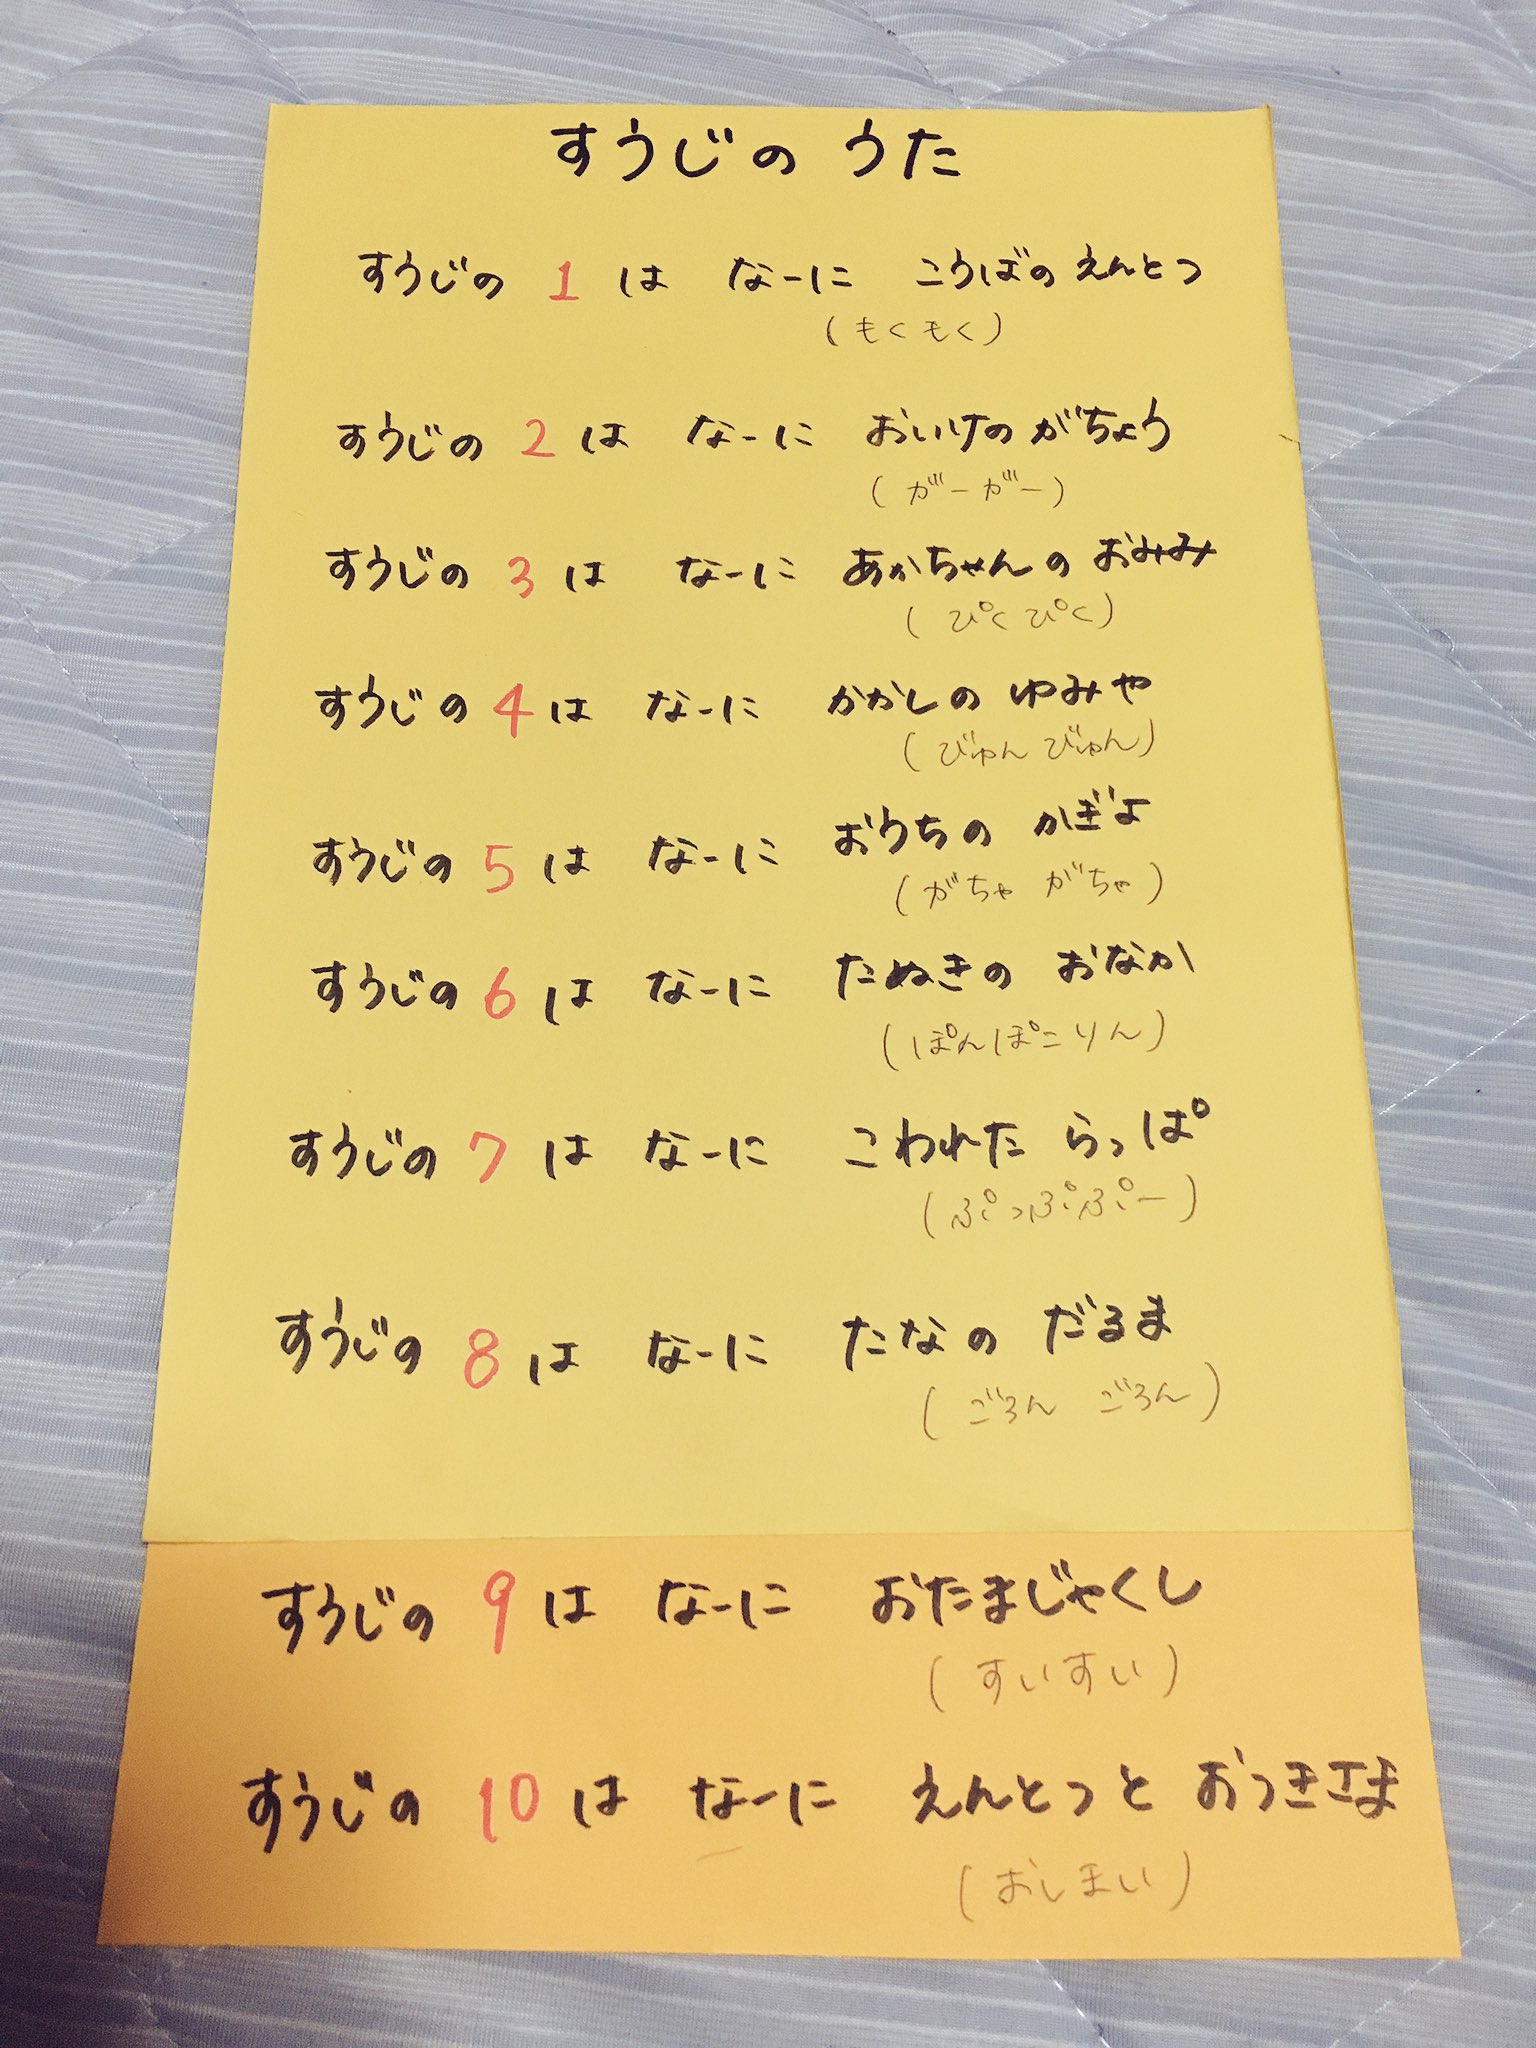 すうじの うた
すうじの 1 は なーに こうばの えんとつ
(もくもく)
すうじの 2 は なーに おいけの がちょう
(がーがー)
すうじの 3 は なーに あかちゃんの おみみ
(ぴくぴく)
すうじの 4 は なーに かかしの ゆみや
(びゅん びゅん)
すうじの 5 は なーに おうちの かぎよ
(がちゃ がちゃ)
すうじの 6 は なーに たぬきの おなか
(ぽんぽこりん)
すうじの 7 は なーに こわれた らっぱ
(ぷっぷぷー)
すうじの 8 は なーに たなの だるま
(ごろん ごろん)
すうじの 9 は なーに おたまじゃくし
(すいすい)
すうじの 10 は なーに えんとつと おつきさま
(おしまい)